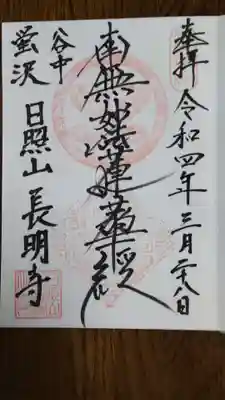 奉拝
令和四年三月二十八日
南無妙法蓮華経
谷中
蛍沢
日照山
長明寺